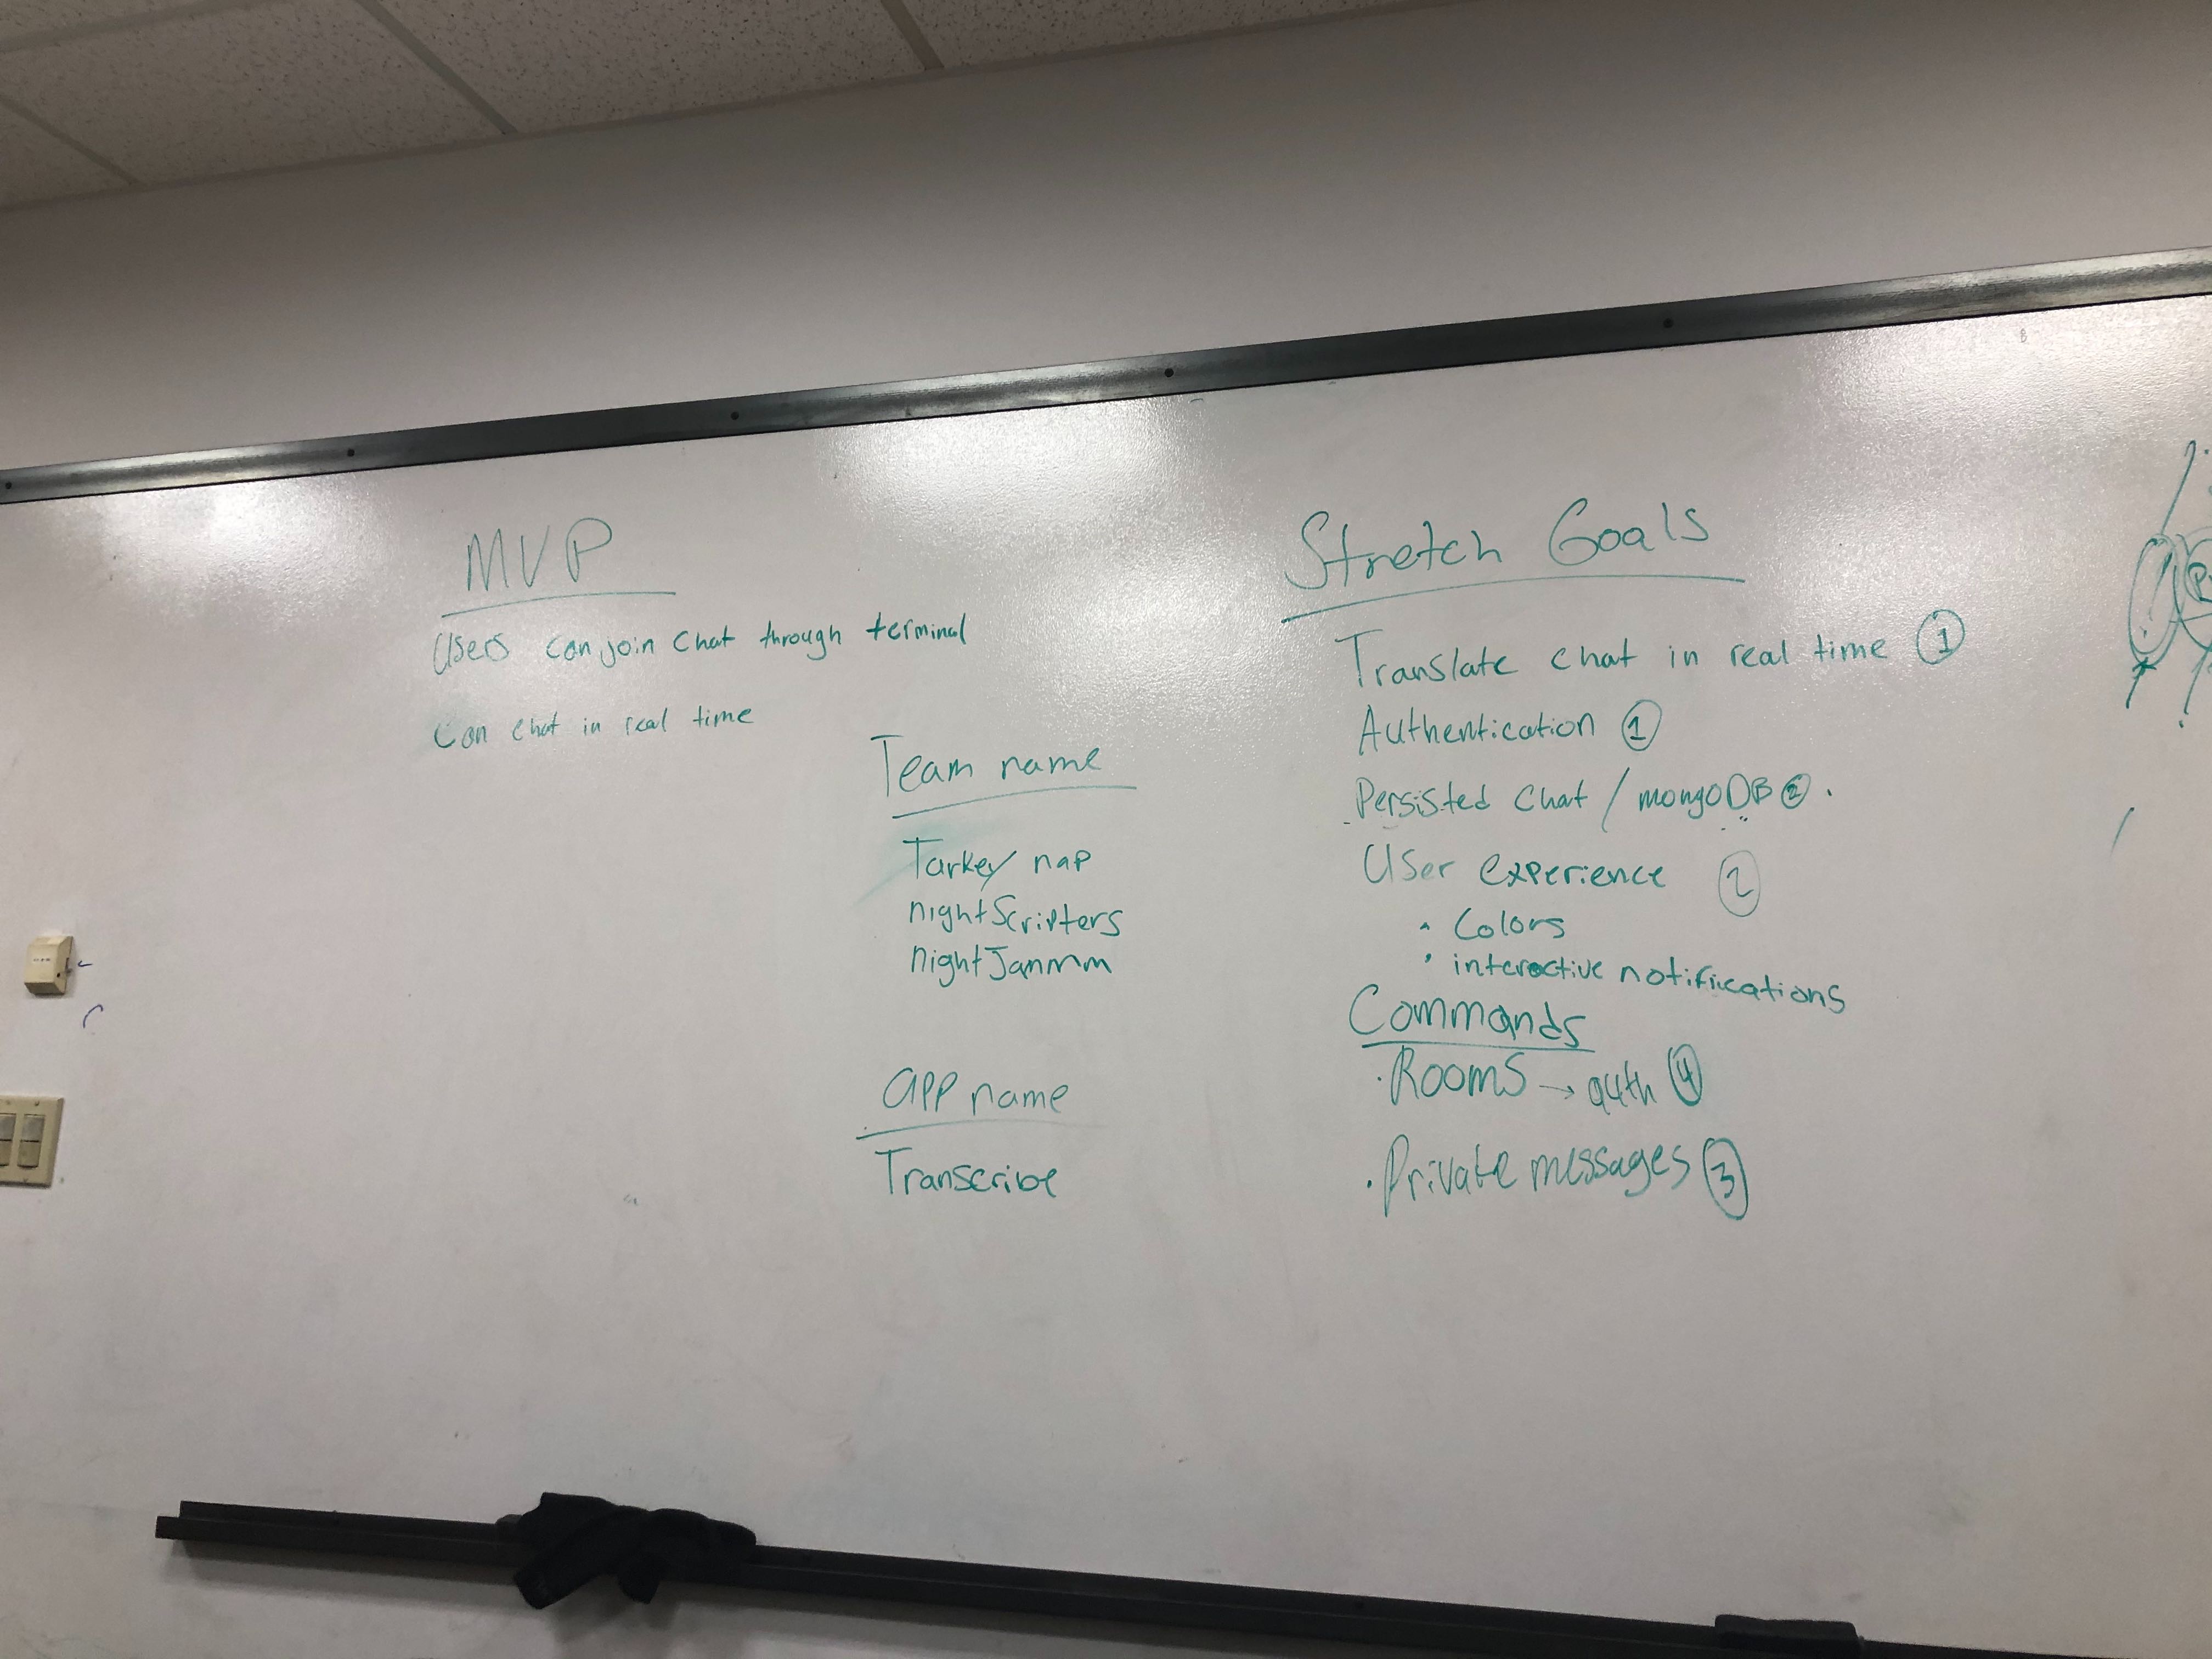 MVP
Users can join chat through terminal
Can chat in real time
Team name
Turkey nap
nightScripters
nightJammm
app name
Transcribe
Stretch Goals
Translate chat in real time 1
Authentication 1
Persisted chat / mongoDB 2.
User experience 2
• Colors
• interactive notifiications
Commands
• Rooms → auth 4
• Private messages 3